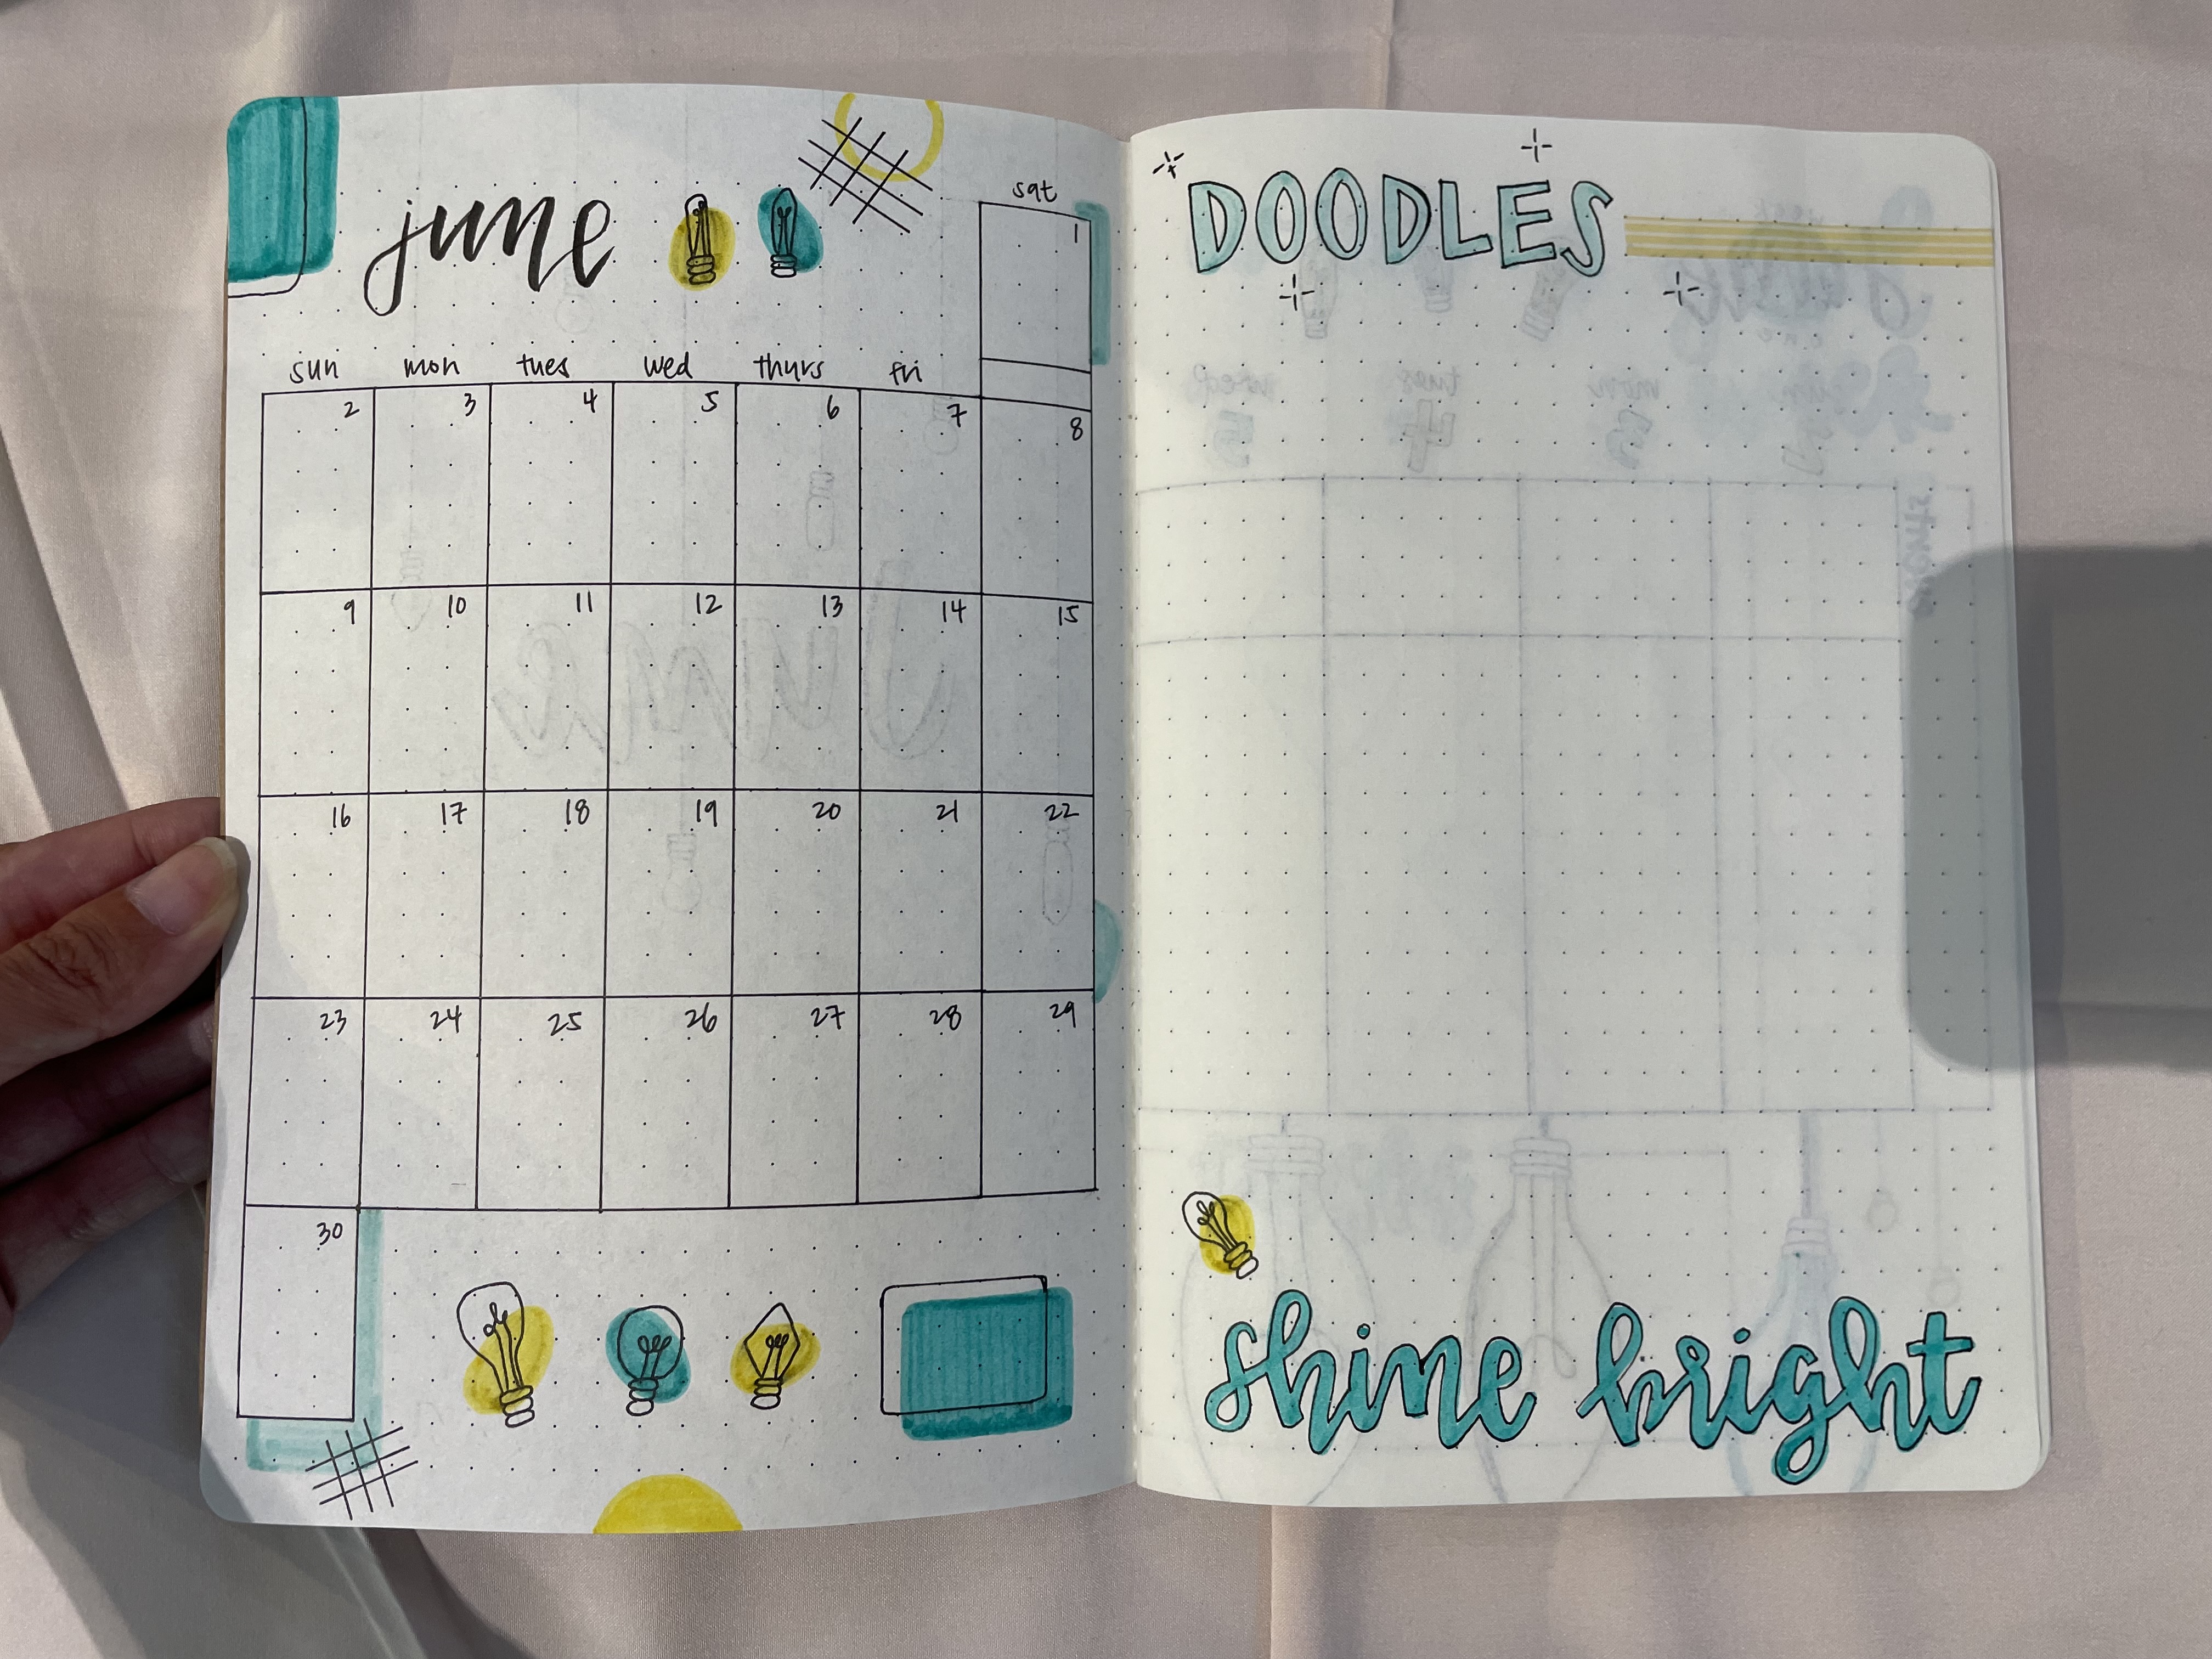 june
sat
1
sun mon tues wed thurs fri
2 3 4 5 6 7 8
9 10 11 12 13 14 15
16 17 18 19 20 21 22
23 24 25 26 27 28 29
30
DOODLES
shine bright